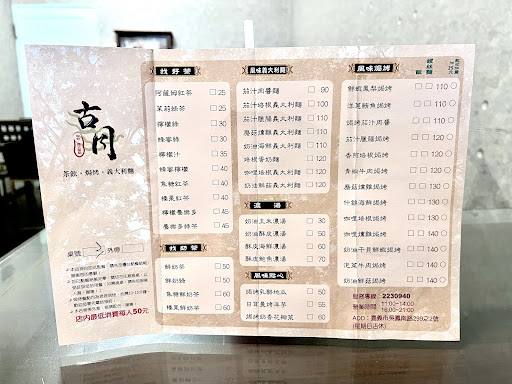 古月
茶飲・焗烤・義大利麵
桌號 外帶
店內最低消費每人50元
找好茶
阿薩姆紅茶 □25
茉莉綠茶 □25
檸檬綠 □30
蜂蜜綠 □30
檸檬汁 □35
蜂蜜檸檬 □40
焦糖紅茶 □40
榛果紅茶 □40
檸檬養樂多 □45
養樂多綠茶 □45
找鮮茶
鮮奶茶 □50
鮮奶綠 □50
焦糖鮮奶茶 □60
榛果鮮奶茶 □60
風味義大利麵
茄汁肉醬麵 □ 90
茄汁培根義大利麵 □100
茄汁臘腸義大利麵 □110
蘑菇燻雞義大利麵 □110
奶油海鮮義大利麵 □120
培根蛋奶麵 □120
咖哩燻雞義大利麵 □120
奶油鮮菇義大利麵 □120
濃湯
奶油玉米濃湯 □ 30
奶油酥皮濃湯 □ 50
酥皮海鮮濃湯 □ 60
酥皮鮑魚濃湯 □ 70
風味點心
焗烤乳酪地瓜 □ 50
日耳曼烤洋芋 □ 55
焗烤奶香花椰菜 □ 60
風味焗烤
飯 螺絲麵
鮮蝦鳳梨焗烤 □ □ 110 ○
洋蔥鮪魚焗烤 □ □ 110 ○
焗烤茄汁肉醬 □ □ 110 ○
茄汁臘腸焗烤 □ □ 120 ○
香煎培根焗烤 □ □ 120 ○
青椒牛肉焗烤 □ □ 130 ○
蘑菇燻雞焗烤 □ □ 130 ○
什錦海鮮焗烤 □ □ 130 ○
咖哩培根焗烤 □ □ 130 ○
咖哩燻雞焗烤 □ □ 130 ○
奶油干貝鮮蝦焗烤 □ □ 140 ○
泡菜牛肉焗烤 □ □ 140 ○
奶油鮮菇焗烤 □ □ 140 ○
服務專線 2230940
營業時間 11:00~14:00
16:00~21:00
ADD:嘉義市吳鳳南路299之2號
(星期日古休)